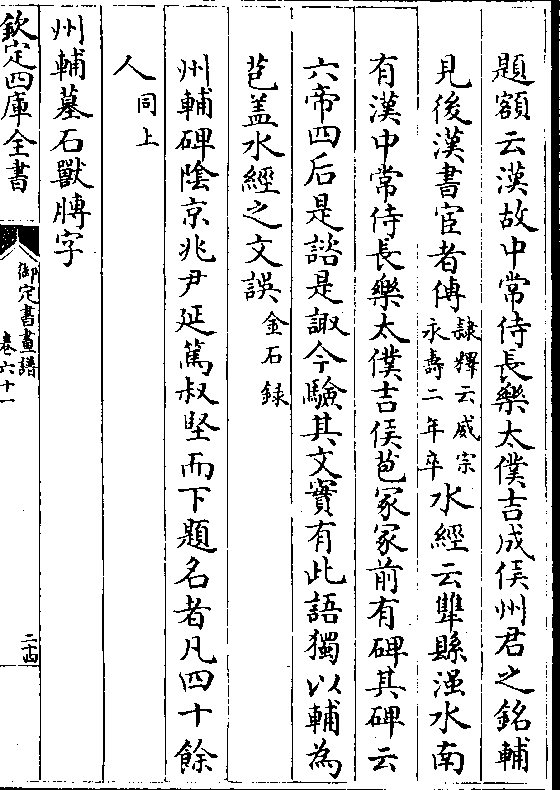 題額云漢故中常侍長樂太僕吉成侯州君之銘輔
見後漢書宦者傳隷釋云威宗永壽二年卒水經云犨縣滍水南
有漢中常侍長樂太僕吉侯苞冢冢前有碑其碑云
六帝四后是諮是諏今驗其文實有此語獨以輔為
苞盖水經之文誤金石録
州輔碑陰京兆尹延篤叔堅而下題名者凡四十餘
人同上
州輔墓石獸膊字
欽定四庫全書
御定書畫譜
卷六十一
二十四